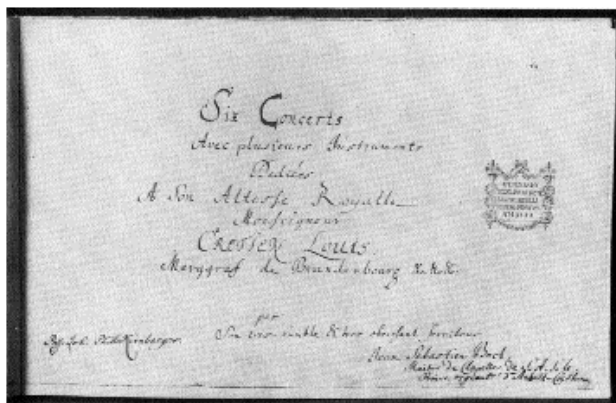 Six Concerts
Avec plusieurs Instruments
Dediées
A Son Altesse Royalle
Monseigneur
CRETIEN LOUIS
Marggraf de Brandenbourg &c &c &c.
par
Son tres humble & tres obeissant Serviteur
Jean Sebastien Bach
Maitre de Chapelle de S. A. S. le
Prince regnant d'Anhalt-Coethen